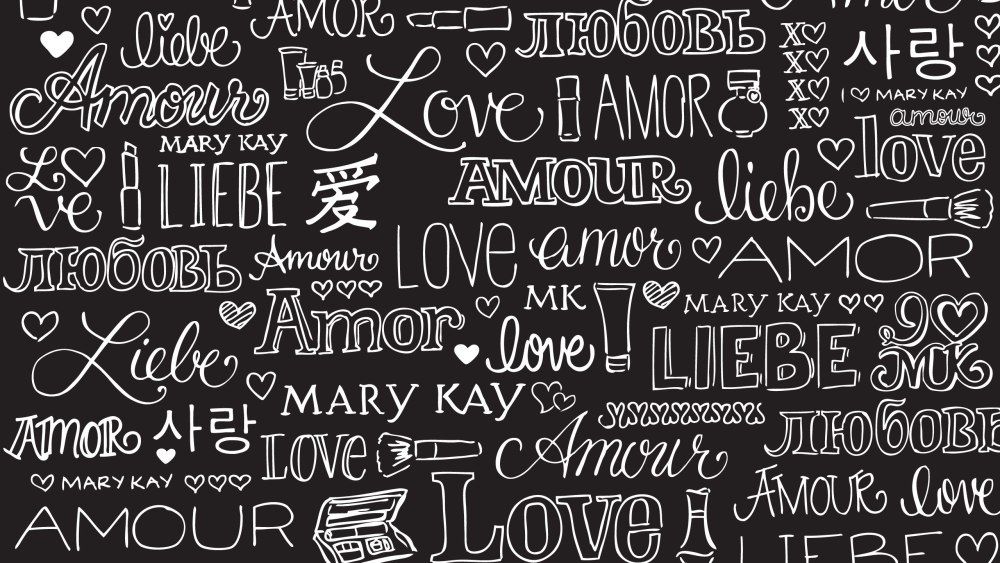 AMOR
ЛЮБОВЬ
liebe
X
사랑
Amour
Love
AMOR
X
I ♡ MARY KAY
X
amour
X
MARY KAY
love
Love
LIEBE
爱
AMOUR
liebe
ЛЮБОВЬ
Amour
LOVE
amor
AMOR
Amor
MK
MARY KAY
Liebe
love
LIEBE
I ♡
MK
MARY KAY
AMOR
사랑
LOVE
Amour
ЛЮБОВЬ
MARY KAY
AMOUR
love
AMOUR
Love
LIEBE